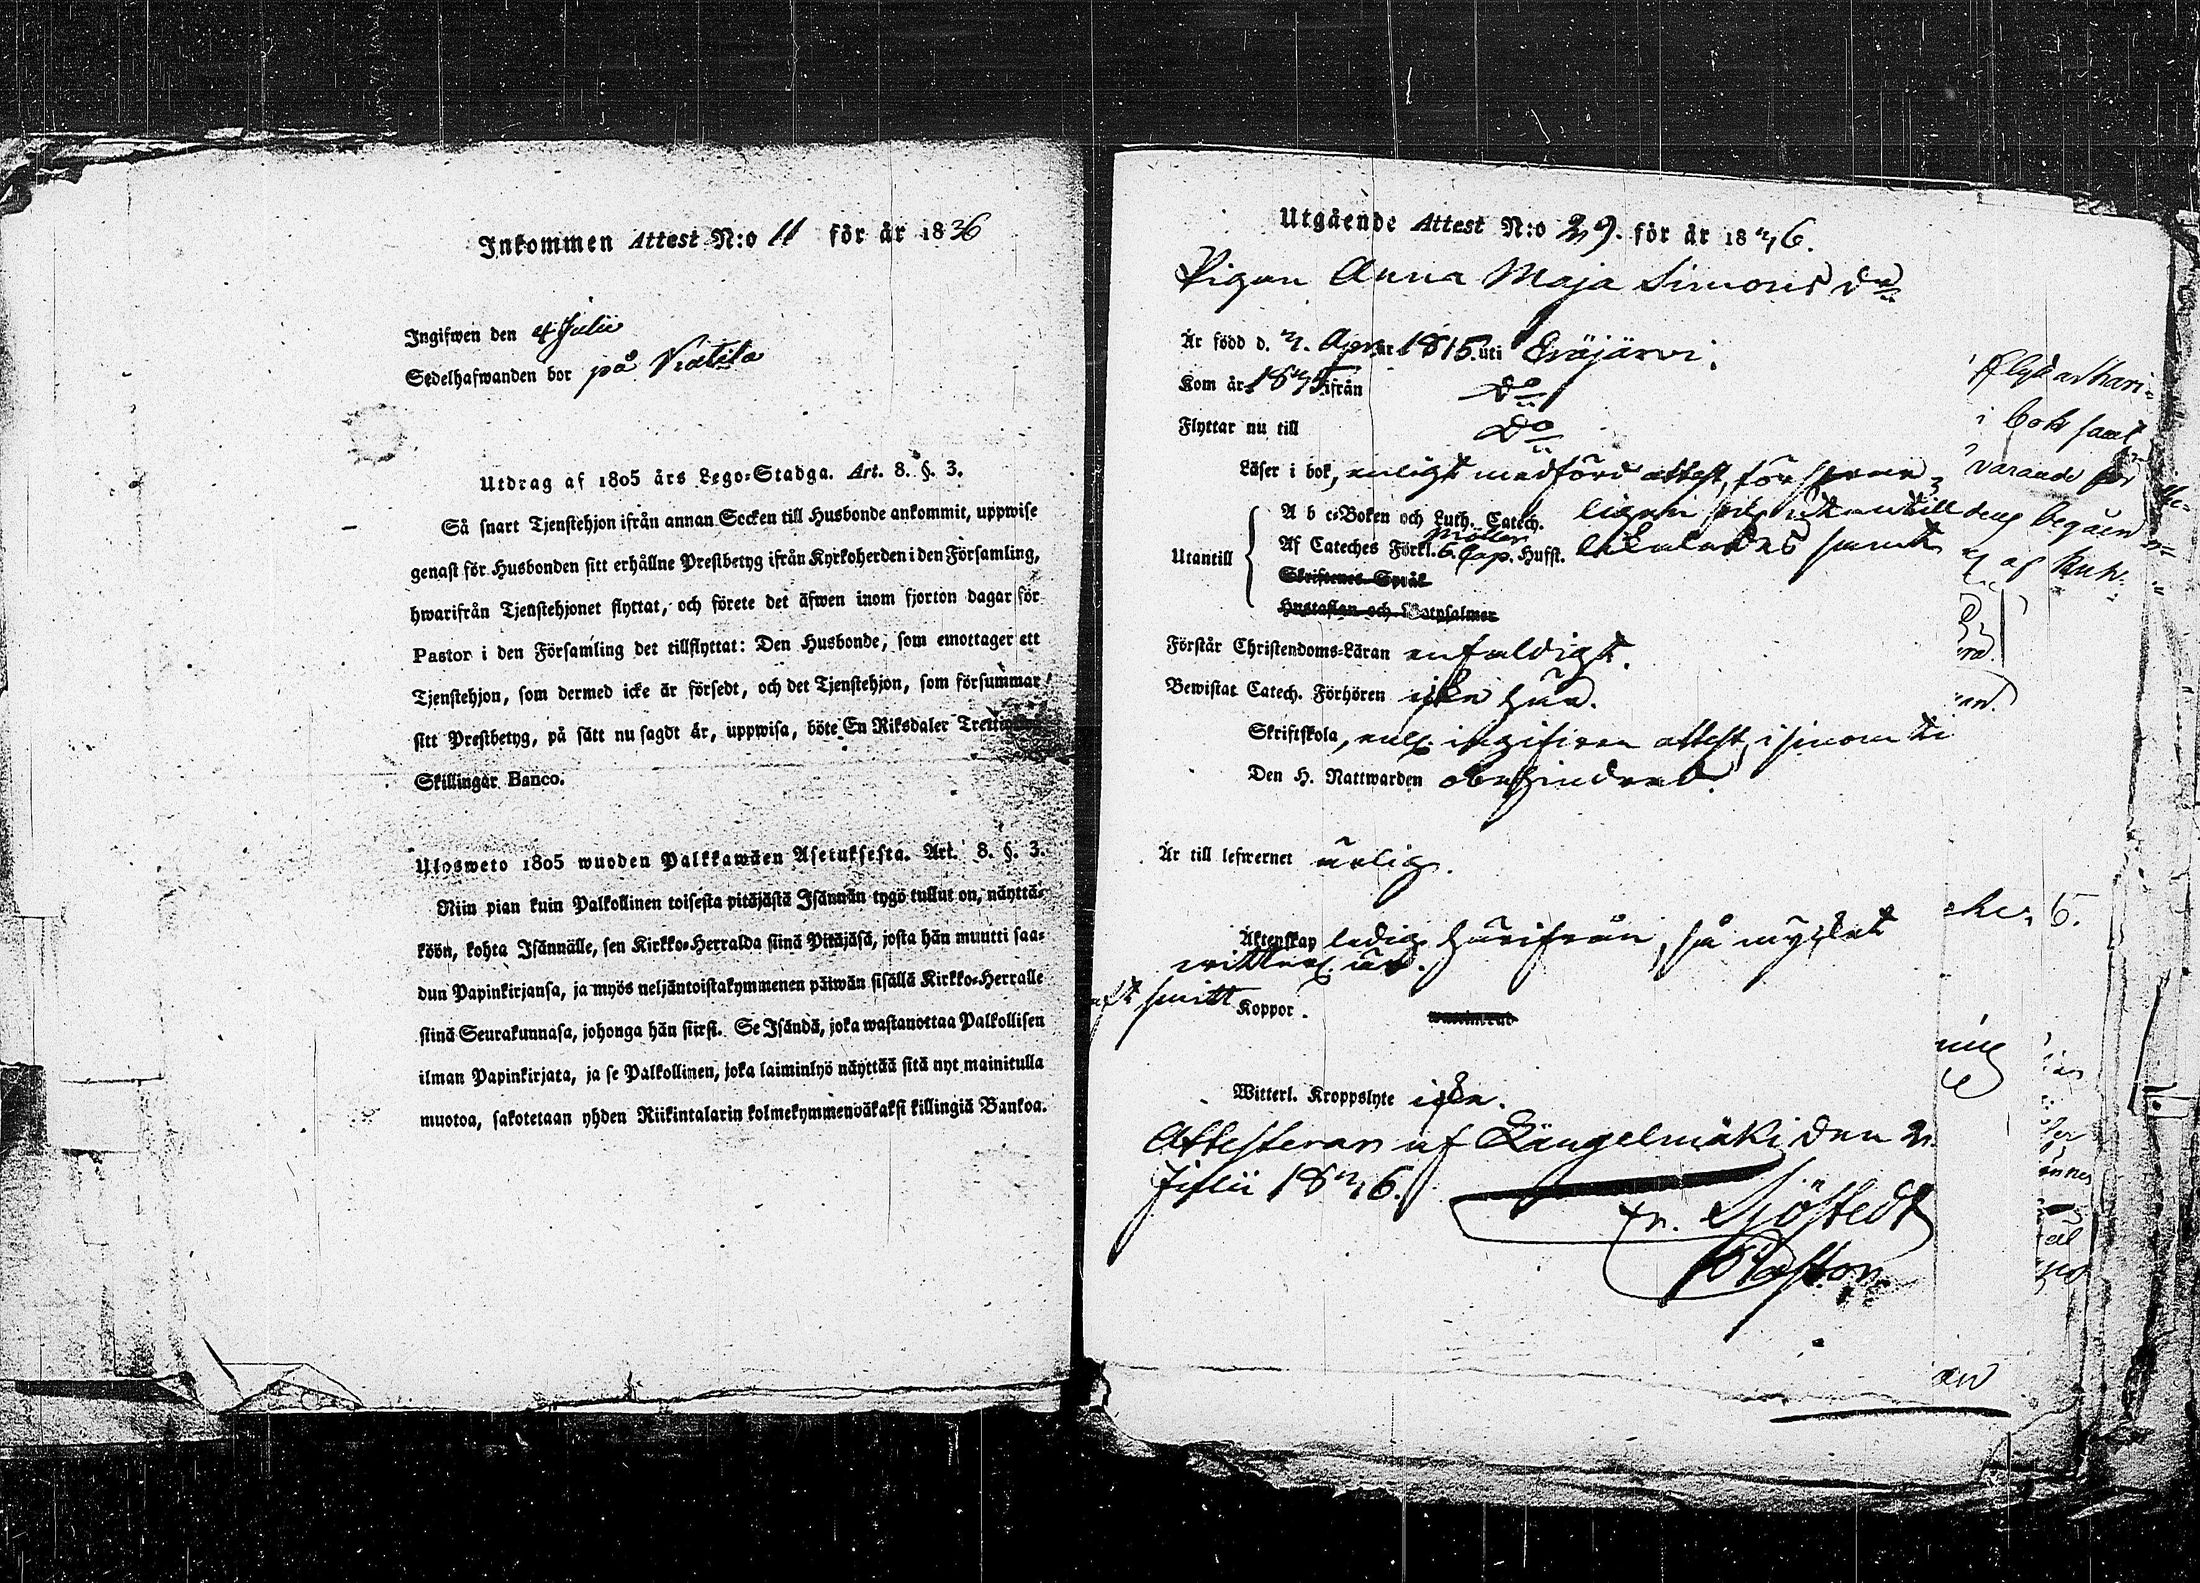 Inkommen Attest N:o 11 för år 1836
Ingifwen den 4 Julii
Sedelhafwanden bor på Wätila
Utdrag af 1805 års Lego-Stadga. Art. 8. §. 3.
Så snart Tjenstehjon ifrån annan Socken till Husbonde ankommit, uppwise
genast för Husbonden sitt erhållne Prestbetyg ifrån Kyrkoherden i den Församling,
hwarifrån Tjenstehjonet flyttat, och förete det äfwen inom fjorton dagar för
Pastor i den Församling det tillflyttat: Den Husbonde, som emottager ett
Tjenstehjon, som dermed icke är försedt, och det Tjenstehjon, som försummar
sitt Prestbetyg, på sätt nu sagdt är, uppwisa, böte En Riksdaler
Skillingar Banco.
Ulosweto 1805 wuoden Palkkawäen Asetuksesta. Art. 8. §. 3.
Niin pian kuin Palkollinen toisesta pitäjästä Isännän tygö tullut on, näyttä-
köön, kohta Isännälle, sen Kirkko-Herralda siinä Pitäjäsä, josta hän muutti saa-
dun Papinkirjansa, ja myös neljäntoistakymmenen päiwän sisällä Kirkko-Herralle
siinä Seurakunnasa, johonga hän siirsi. Se Isändä, joka wastanottaa Palkollisen
ilman Papinkirjata, ja se Palkollinen, joka laiminlyö näyttää sitä nyt mainitulla
muotoa, sakotetaan yhden Riikintalarin kolmekymmenväkaksi killingiä Bankoa.
Utgående Attest N:o 29. för år 1836.
Pigan Anna Maja Simons dr
Är född d. 3. Apr. år 1815. uti Eräjärwi.
Kom år 1835 ifrån Do
Flyttar nu till Do
Läser i bok, enligt medförd attest, försvar-
Utantill
A b c-Boken och Luth. Catech. ligen och utantill
Af Cateches Förkl. Möllers 6. Cap. Hufst.
Skriftenes Språk
Hustaflan och Botpsalmer
Förstår Christendoms-Läran enfaldigt.
Bewistat Catech. Förhören icke här.
Skriftskola, enl. ingifwen attest, i sinom ti
Den H. Nattwarden obehindrad.
Är till lefwernet ärlig.
Äktenskap ledig härifrån, så mycket
witterl. är.
haft smitt Koppor.
Witterl. Kroppslyte icke.
Attesteras af Längelmäki den 2
Julii 1836.
Sjöstedt
Pastor.
i bok samt
varande för
deng begäen
af